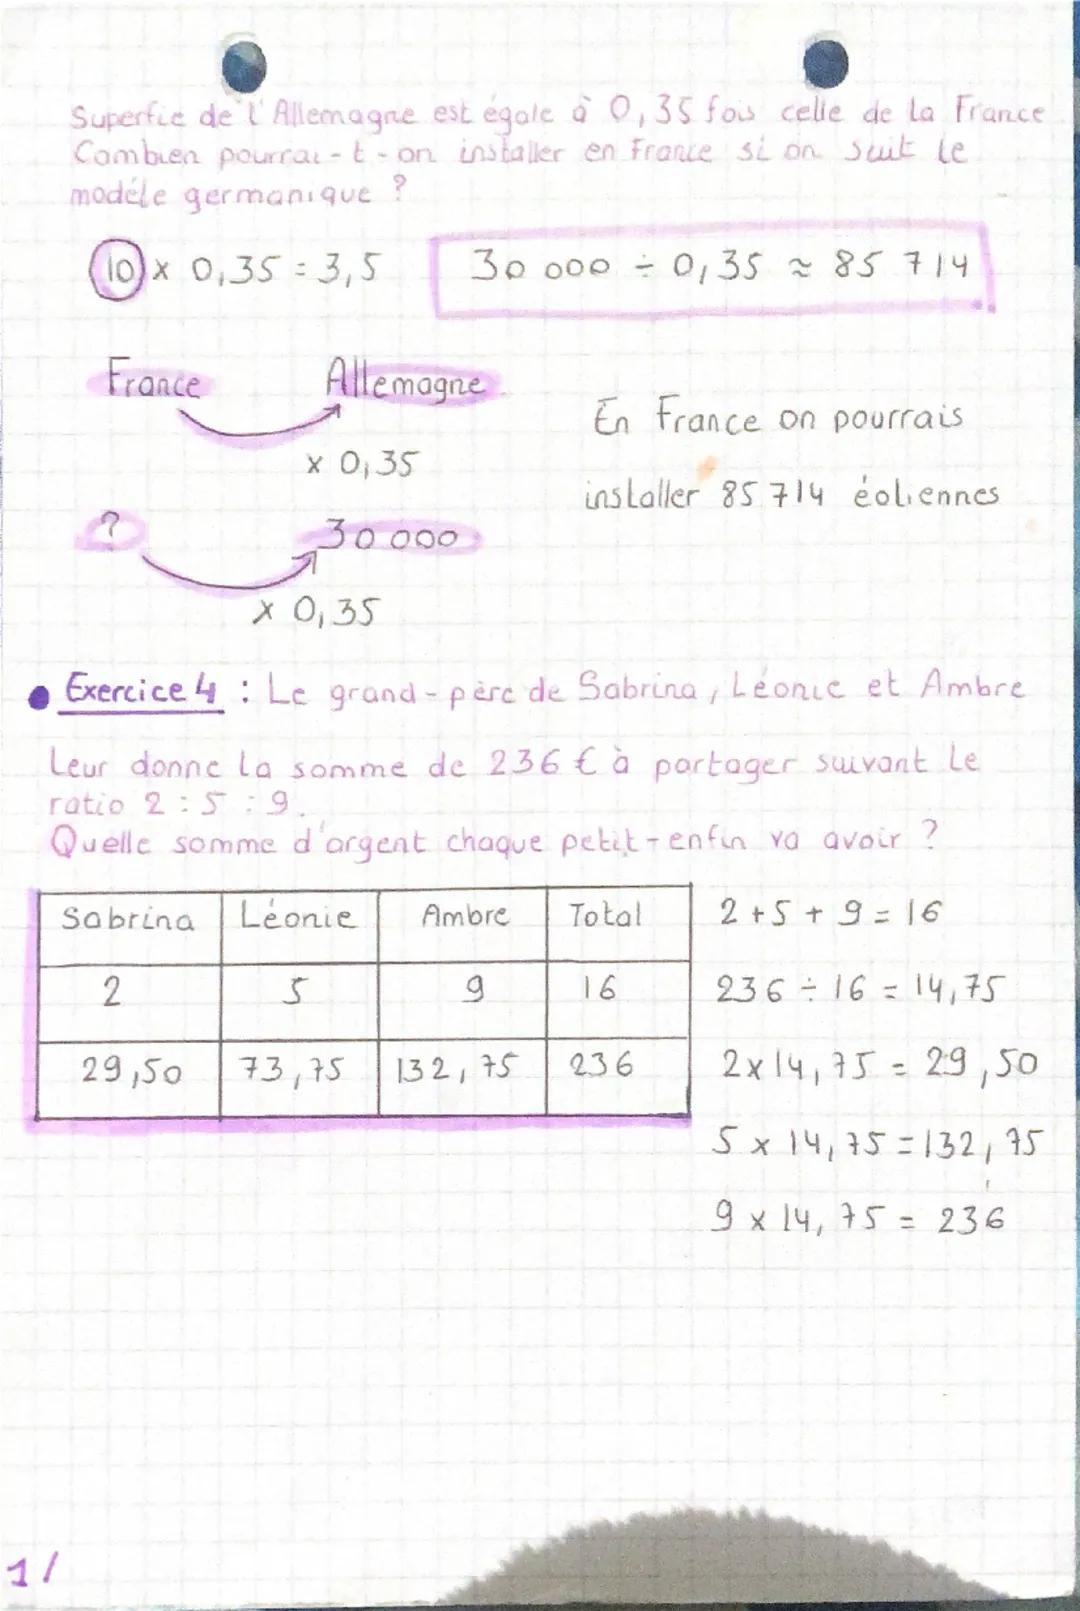 Superfie de l'Allemagne est égale à 0,35 fois celle de la France
Combien pourrai-t-on installer en France si on suit le
modéle germanique ?
10 x 0,35 = 3,5
30 000 ÷ 0,35 ≈ 85 714
France Allemagne
x 0,35
? 30 000
x 0,35
En France on pourrais
installer 85 714 éoliennes
Exercice 4 : Le grand-père de Sabrina, Léonie et Ambre
Leur donne la somme de 236 € à partager suivant le
ratio 2 : 5 : 9.
Quelle somme d'argent chaque petit-enfin va avoir ?
Sabrina Léonie Ambre Total
2 5 9 16
29,50 73,75 132,75 236
2 + 5 + 9 = 16
236 ÷ 16 = 14,75
2 x 14,75 = 29,50
5 x 14,75 = 132,75
9 x 14,75 = 236
1/